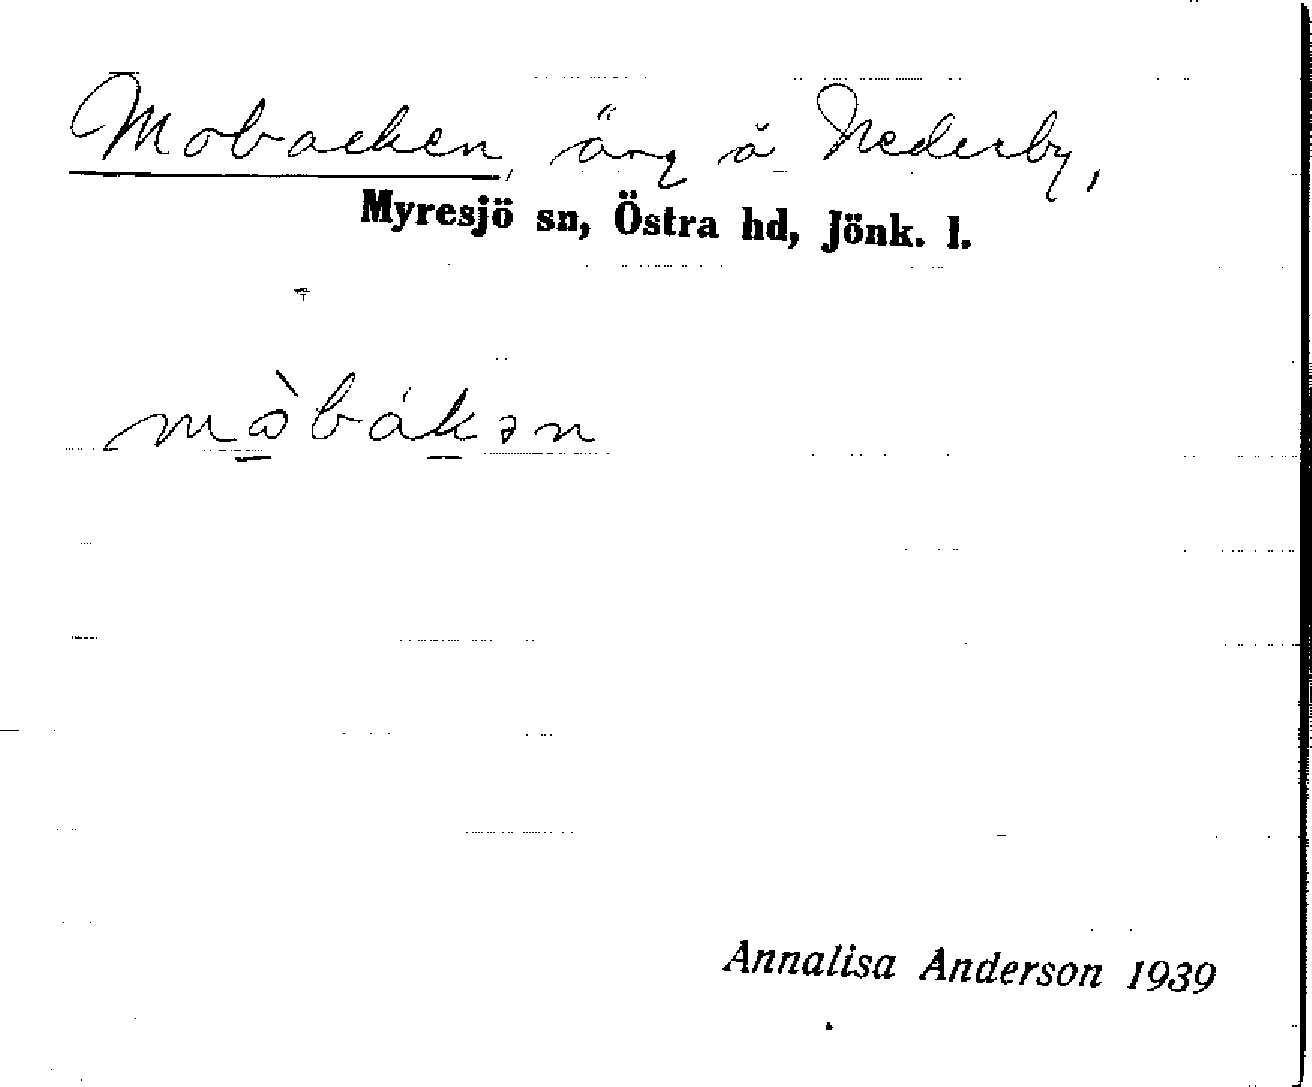 Mobacken, äng å Nederby,
Myresjö sn, Östra hd, Jönk. l.
mòbákən
Annalisa Anderson 1939